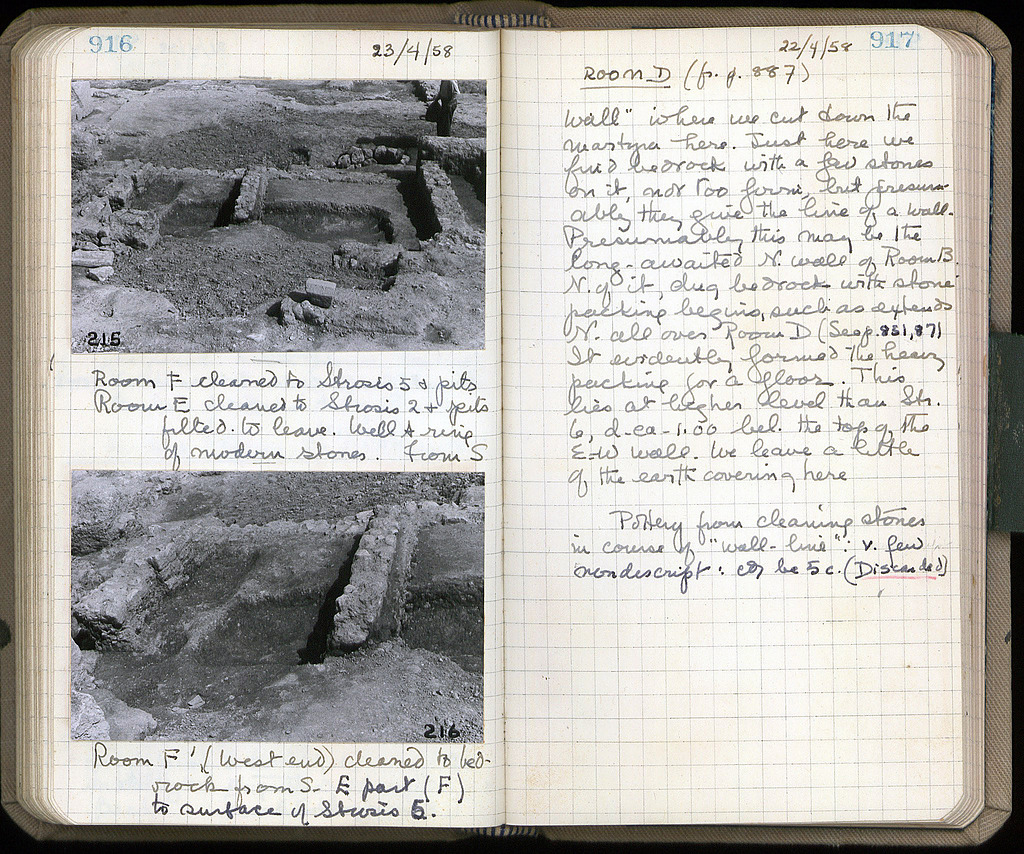 916
23/4/58
215
Room F cleaned to Strosis 5 & pits
Room E cleaned to Strosis 2 + pits
filled to leave. Well & ring
of modern stones. From S
216
Room F' (West end) cleaned to bed-
rock from S. E part (F)
to surface of Strosis 5.
22/4/58
917
ROOM D (fr. p. 887)
wall" where we cut down the
martyra here. Just here we
find bedrock with a few stones
on it, not too firm, but presum-
ably they give the line of a wall.
Presumably this may be the
long-awaited N. wall of Room B.
N. of it, dug bedrock with stone
packing begins, such as extends
N. all over Room D (See p. 851, 871
It evidently formed the heavy
packing for a floor. This
lies at higher level than Str.
6, d. ca -1.00 bel. the top of the
E-W wall. We leave a little
of the earth covering here
Pottery from cleaning stones
in course of "wall-line": v. few
nondescript: cd be 5 c. (Discarded)